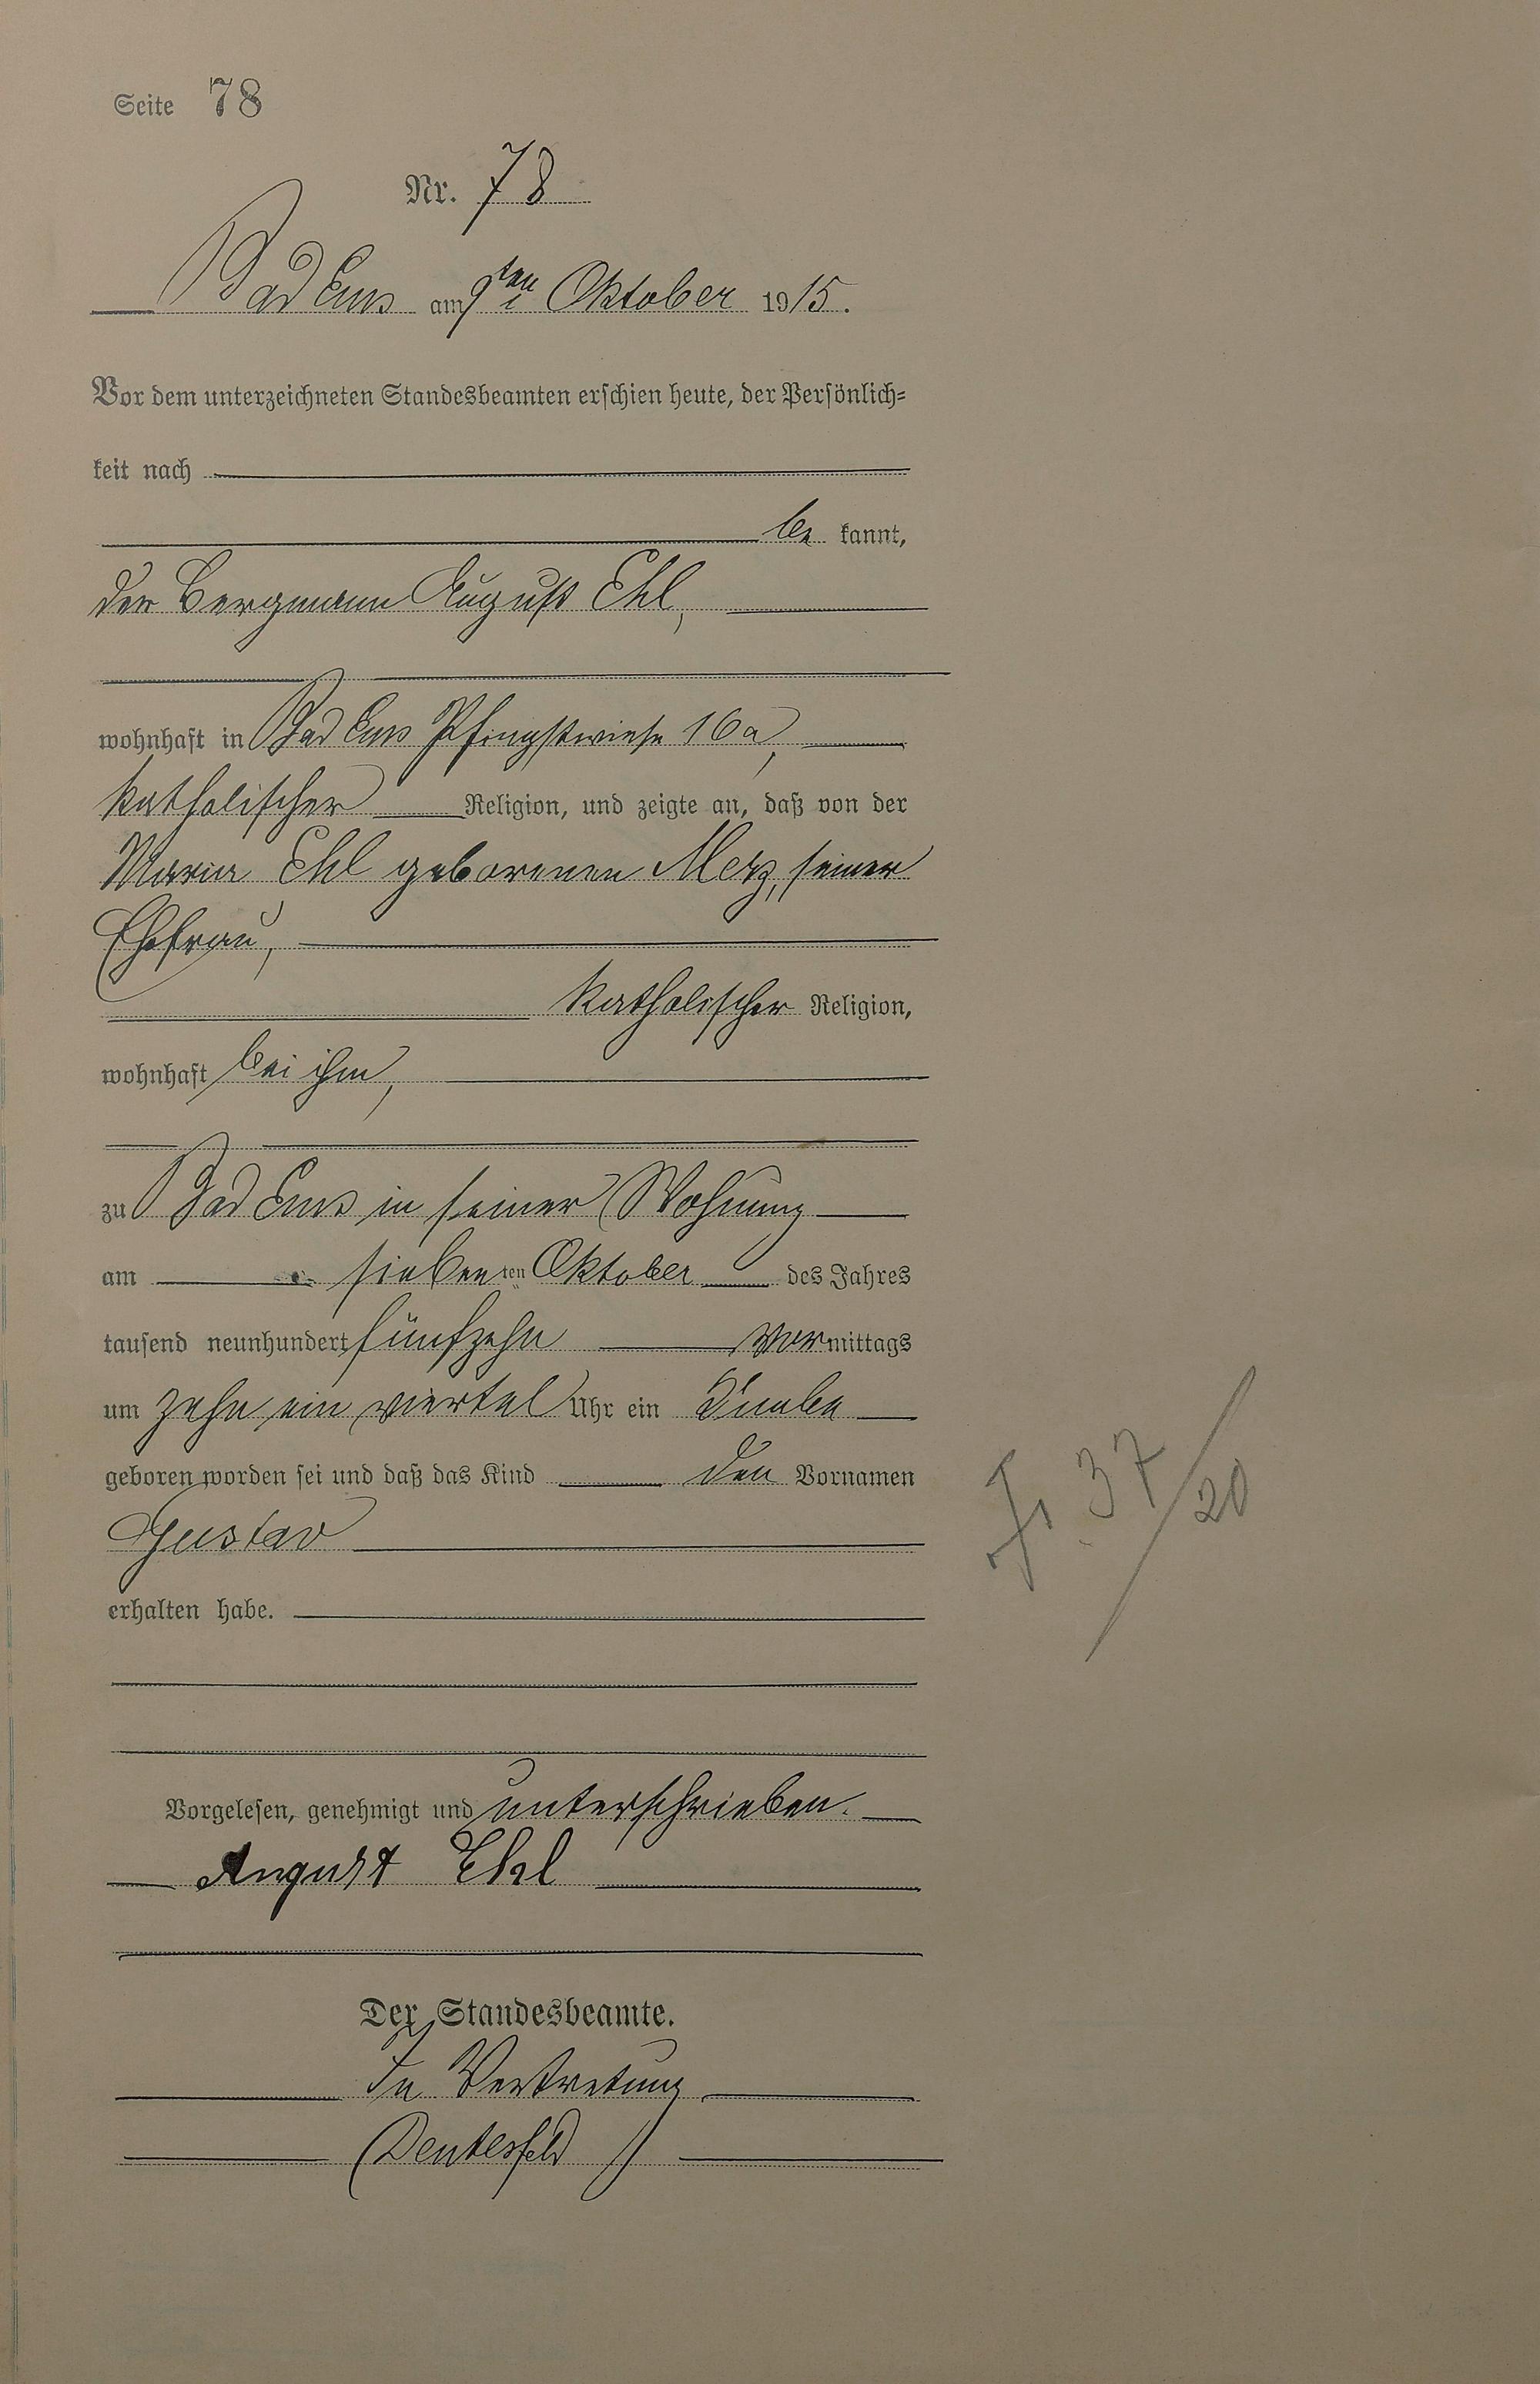 Seite 78
Nr. 78
Bad Ems am 9ten Oktober 1915.
Vor dem unterzeichneten Standesbeamten erschien heute, der Persönlich=
keit nach
be kannt,
der Bergmann August Ehl,
wohnhaft in Bad Ems Pfingstwiese 16a,
katholischer Religion, und zeigte an, daß von der
Maria Ehl geborenen Merz, seiner
Ehefrau,
katholischer Religion,
wohnhaft bei ihm,
zu Bad Ems in seiner Wohnung
am siebenten Oktober des Jahres
tausend neunhundert fünfzehn Vormittags
um zehn ein viertel Uhr ein Knabe
geboren worden sei und daß das Kind den Vornamen
Gustav
erhalten habe.
37/20
Vorgelesen, genehmigt und unterschrieben.
August Ehl
Der Standesbeamte.
In Vertretung